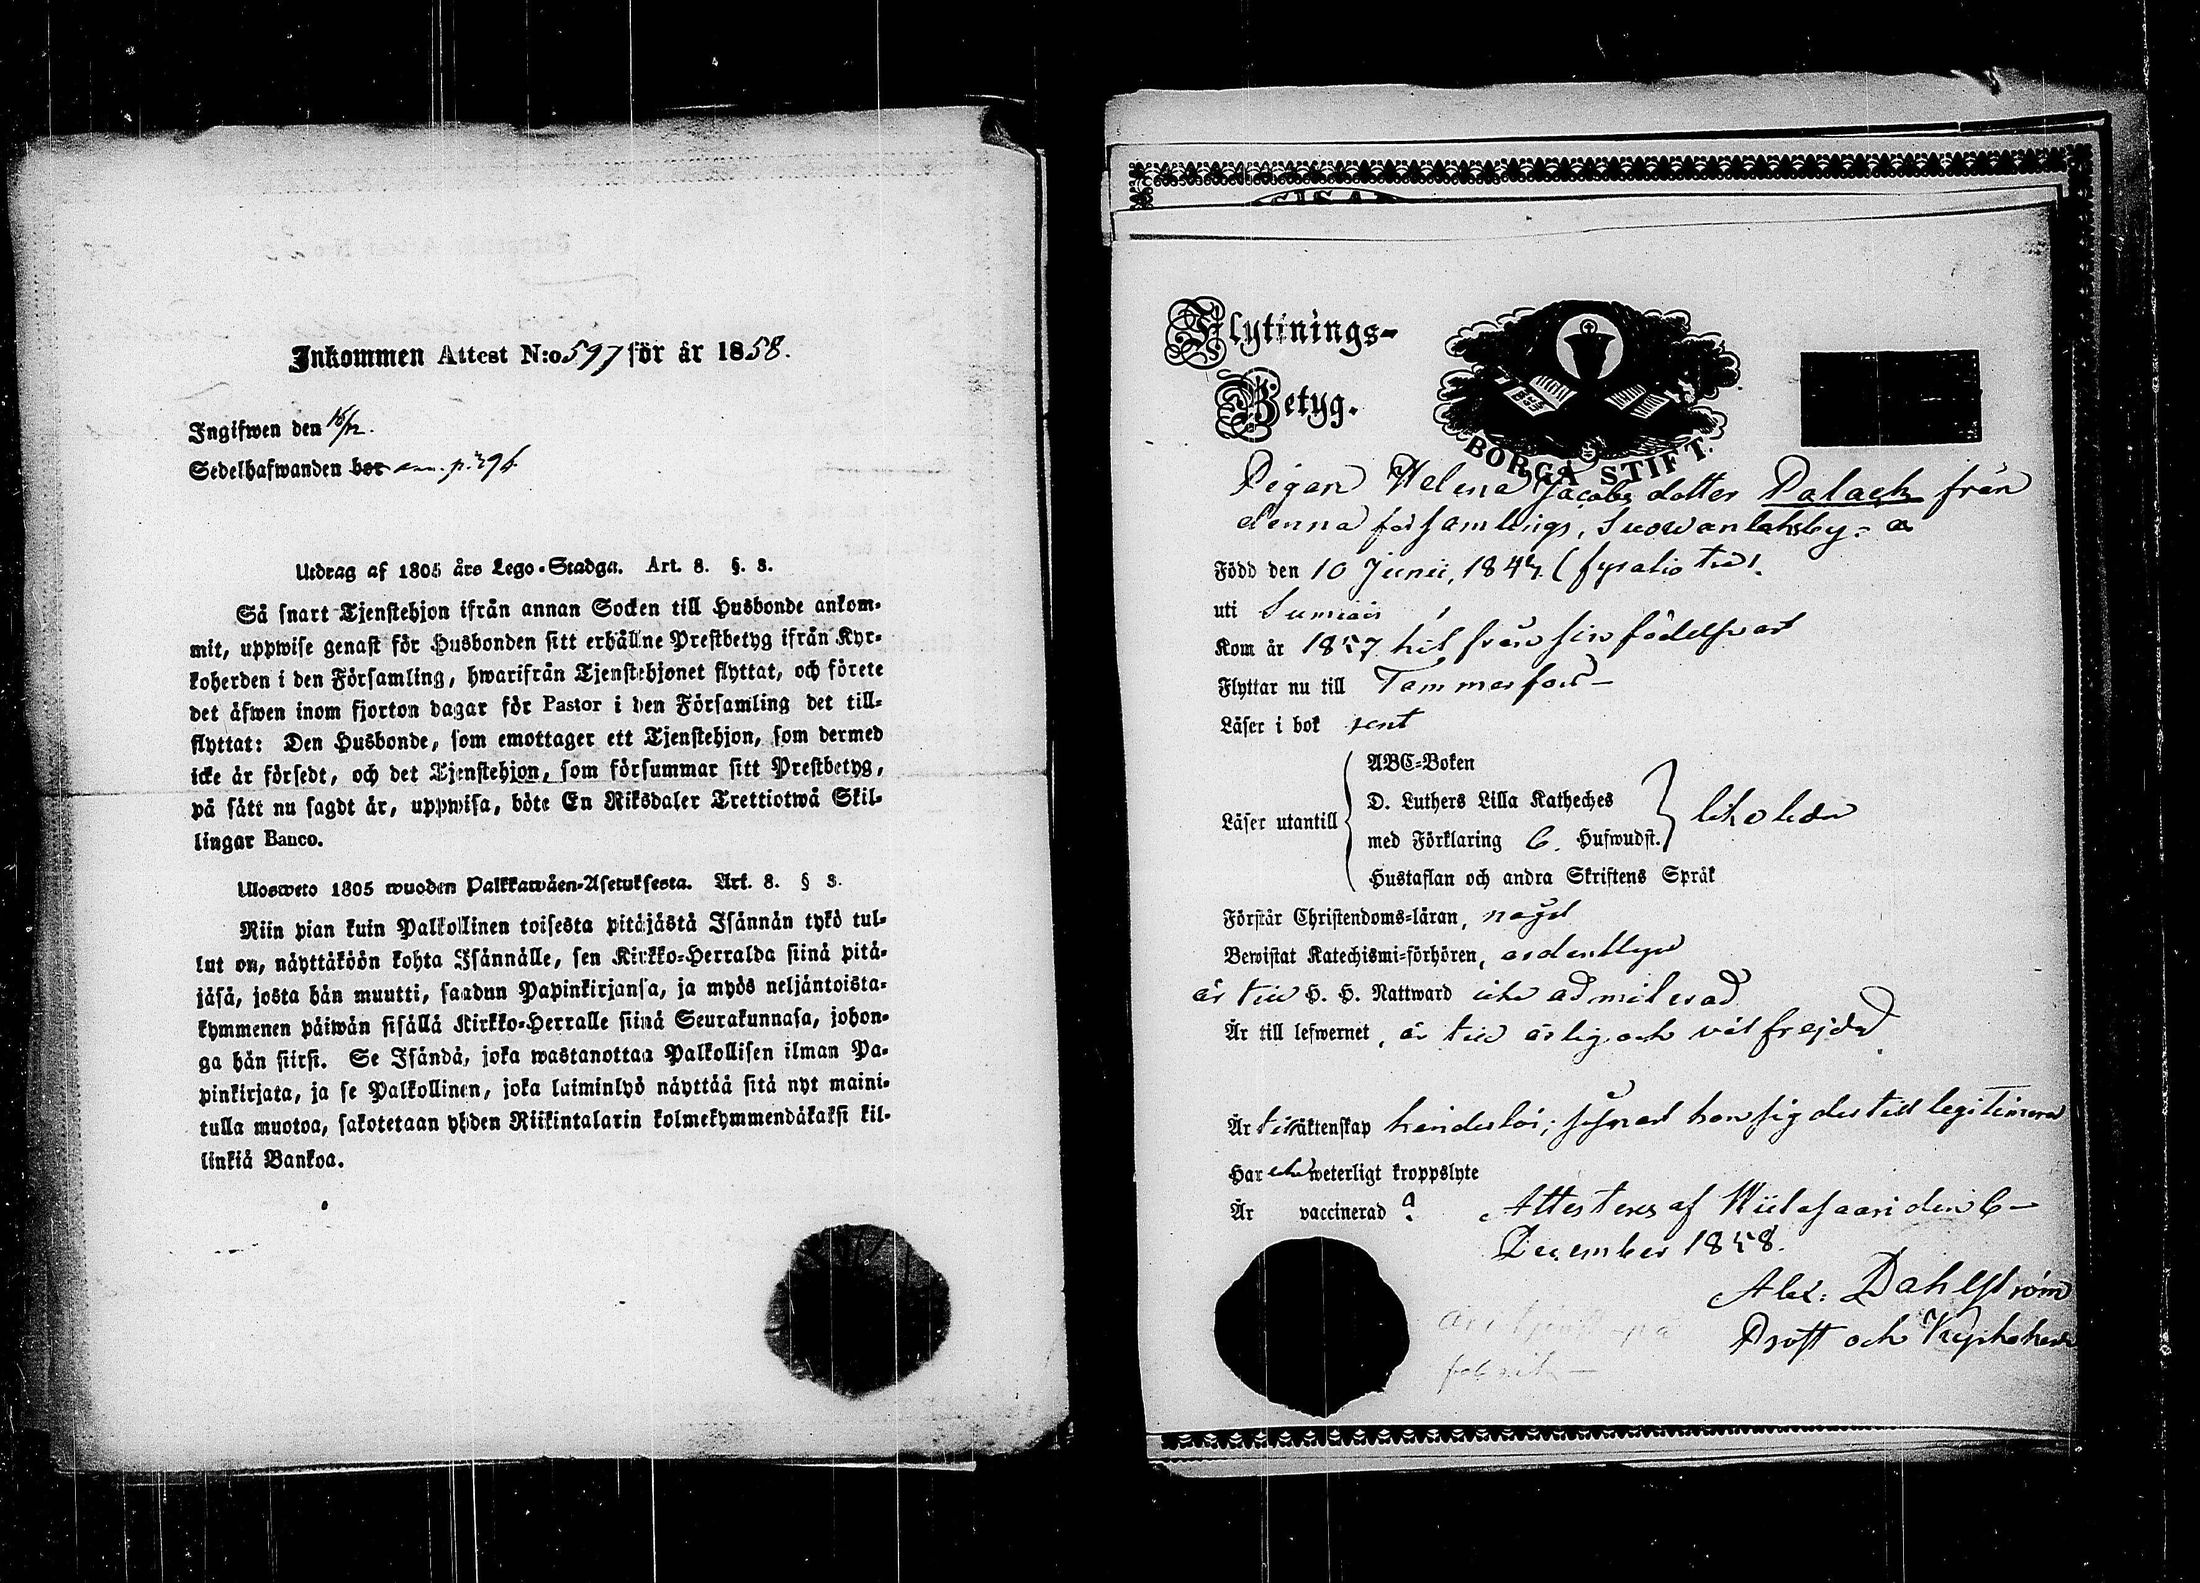 Inkommen Attest N:o 597 för år 1858.
Ingifwen den 16/12.
Sedelhafwanden bor ann. p. 296
Utdrag af 1805 års Lego-Stadga. Art. 8. §. 3.
Så snart Tjenstehjon ifrån annan Socken till Husbonde ankom-
mit, uppwise genast för Husbonden sitt erhållne Prestbetyg ifrån Kyr-
koherden i den Församling, hwarifrån Tjenstehjonet flyttat, och förete
det äfwen inom fjorton dagar för Pastor i den Församling det till-
flyttat: Den Husbonde, som emottager ett Tjenstehjon, som dermed
icke är försedt, och det Tjenstehjon, som försummar sitt Prestbetyg,
på sätt nu sagdt är, uppwisa, böte En Riksdaler Trettiotwå Skil-
lingar Banco.
Ulosweto 1805 wuoden Palkkawäen-Asetuksesta. Art. 8. § 3.
Niin pian kuin Palkollinen toisesta pitäjästä Isännän tykö tul-
lut on, näyttäköön kohta Isännälle, sen Kirkko-Herralda siinä pitä-
jäsä, josta hän muutti, saadun Papinkirjansa, ja myös neljäntoista-
kymmenen päiwän sisällä Kirkko-Herralle siinä Seurakunnasa, johon-
ga hän siirsi. Se Isändä, joka wastanottaa Palkollisen ilman Pa-
pinkirjata, ja se Palkollinen, joka laiminlyö näyttää sitä nyt maini-
tulla muotoa, sakotetaan yhden Riikintalarin kolmekymmendäkaksi kil-
linkiä Bankoa.
Flyttnings-
Betyg.
BORGÅ STIFT.
Pigan Helena Jacobs dotter Palack från
denna församlings, Suowanlahsby
Född den 10 Junii, 184 (fyratio
uti Sumiais
Kom år 1857 hit från sin födelseort
Flyttar nu till Tammerfors
Läser i bok rent
Läser utantill
ABC-Boken
D. Luthers Lilla Katheches
med Förklaring 6. Hufwudst.
Hustaflan och andra Skriftens Språk
Förstår Christendoms-läran, något
Bewistat Katechismi-förhören, ordentligen
är till H. H. Nattward icke admitterad
Är till lefwernet, är till ärlig och väl frejdad
Är till äktenskap hinderlös; hon sig dertill legitimera
Har icke weterligt kroppslyte
Är vaccinerad ?
Attesteres af Wiitasaari den 6
December 1858.
Alex: Dahlström
Prost och Kyrkoherde
är i tjenst på
fabrik